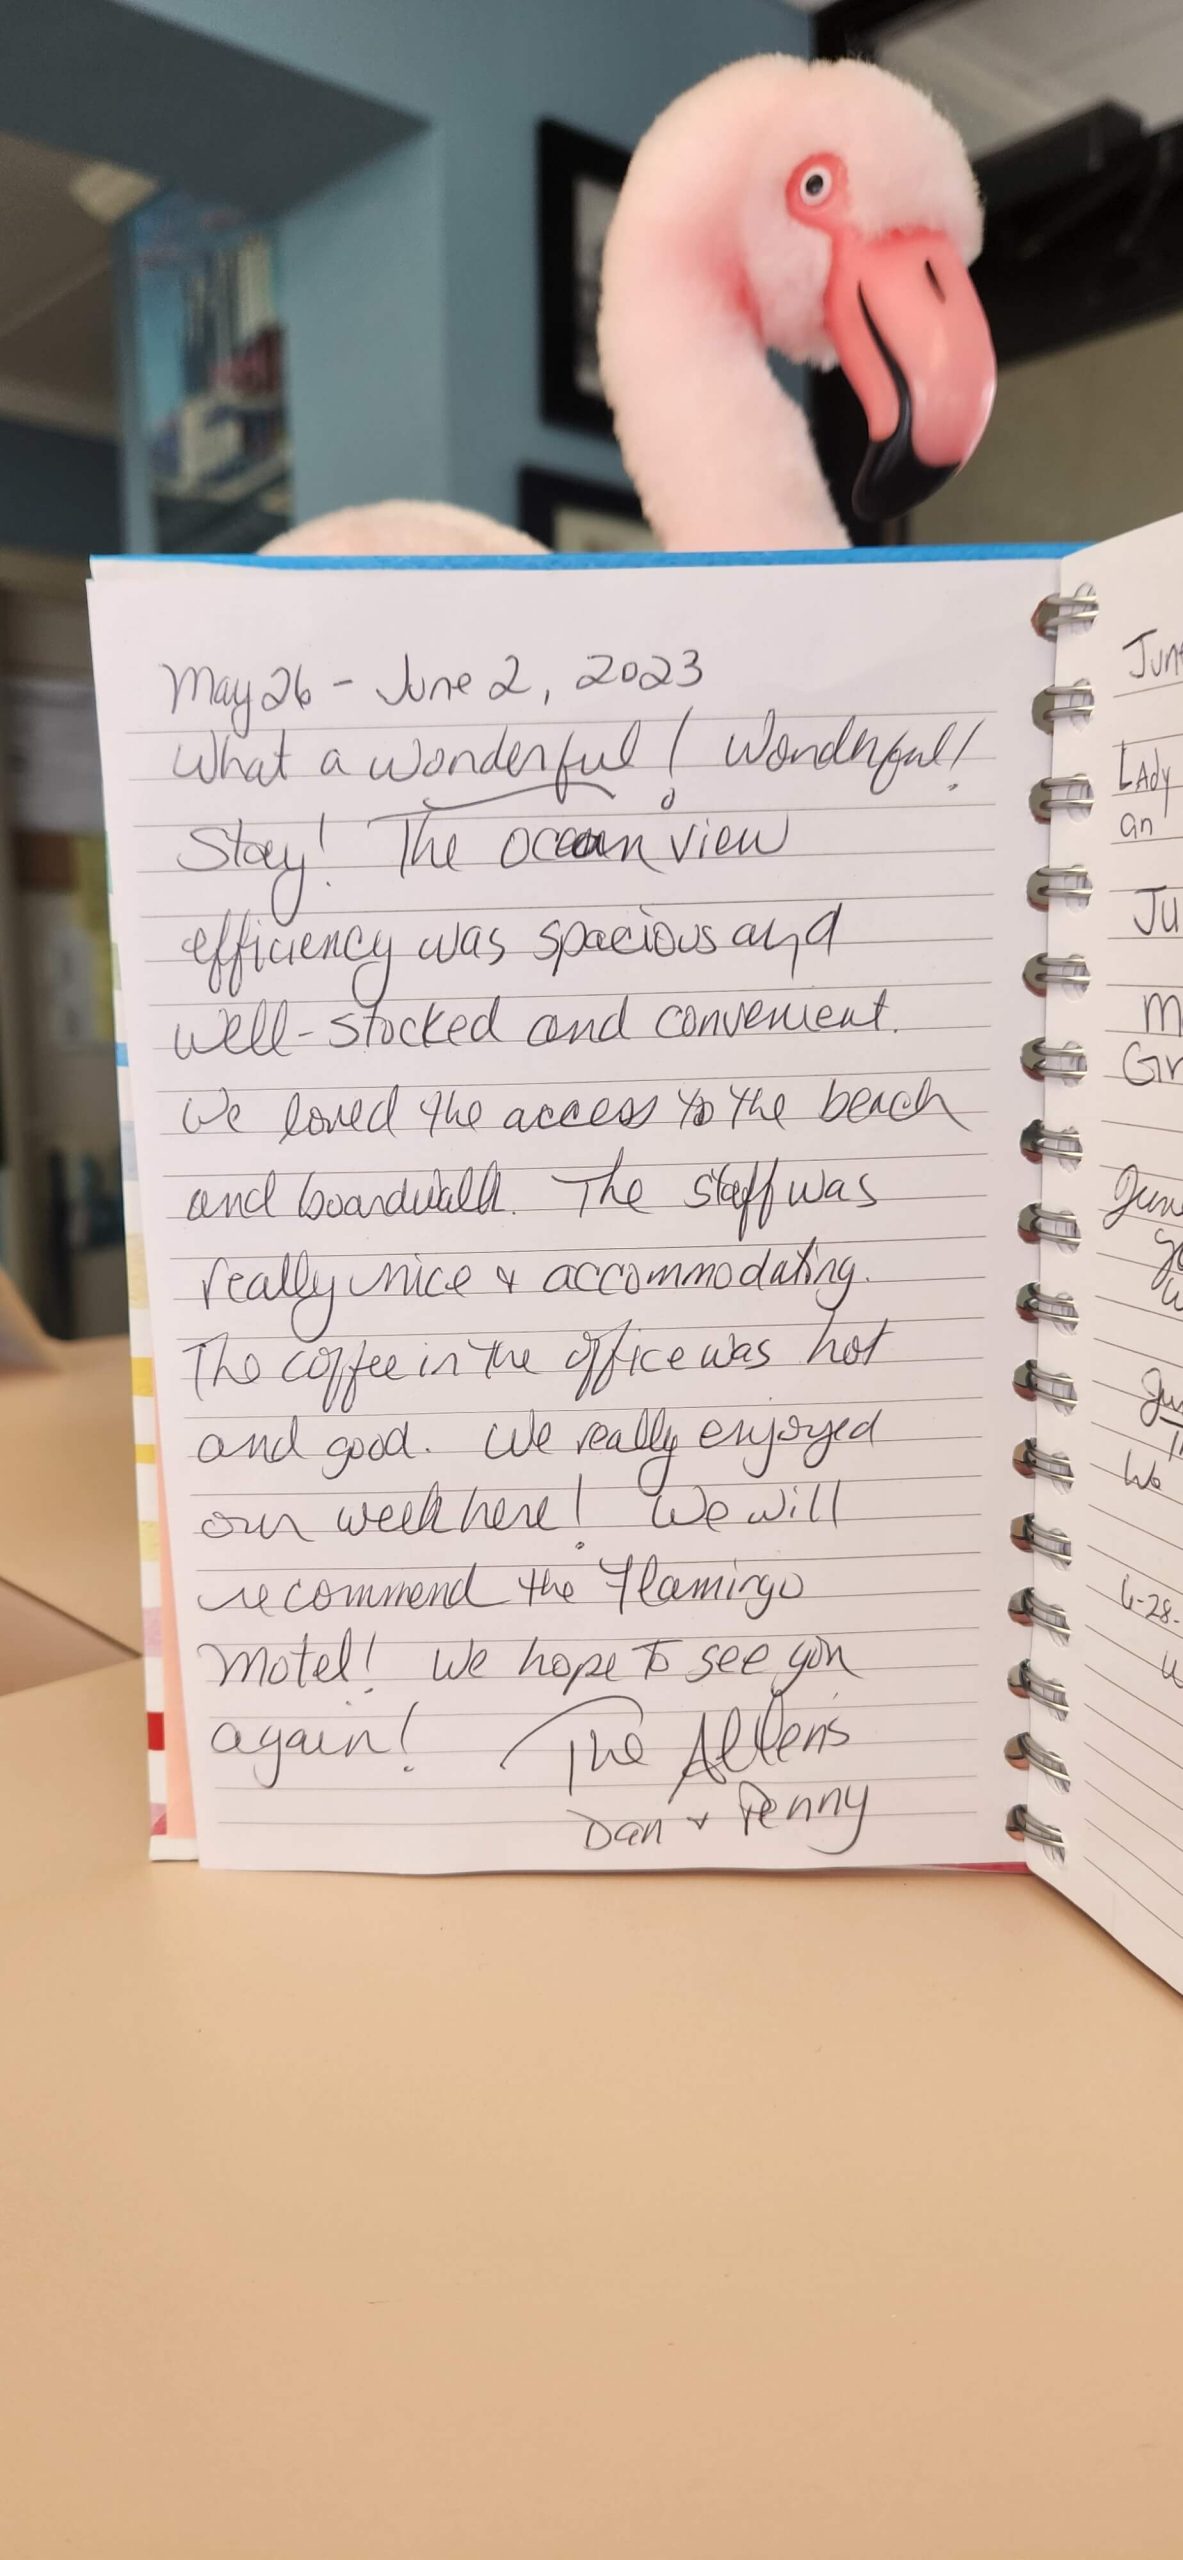 May 26 - June 2, 2023
What a wonderful! Wonderful!
Stay! The ocean view
efficiency was spacious and
well-stocked and convenient.
We loved the access to the beach
and boardwalk. The staff was
really nice & accommodating.
The coffee in the office was hot
and good. We really enjoyed
our week here! We will
recommend the Flamingo
Motel! We hope to see you
again! The Allens
Dan & Penny
LAdy
an
Ju
m
Gr
6-28-